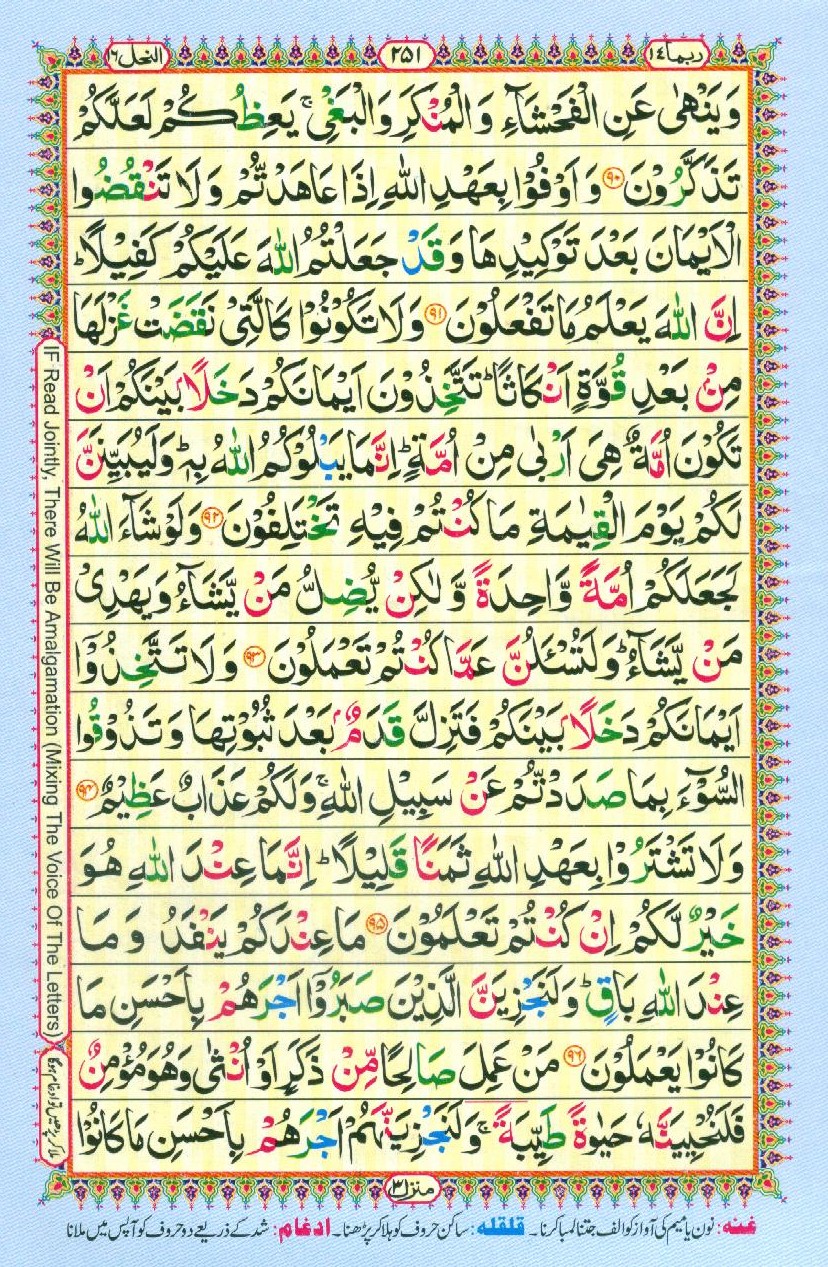 ربما ١٤
٢٥١
النحل ١٦
وَيَنْهٰى عَنِ الْفَحْشَآءِ وَالْمُنْكَرِ وَالْبَغْيِ ۚ يَعِظُكُمْ لَعَلَّكُمْ
تَذَكَّرُوْنَ ﴿٩٠﴾ وَاَوْفُوْا بِعَهْدِ اللّٰهِ اِذَا عَاهَدْتُّمْ وَلَا تَنْقُضُوا
الْاَيْمَانَ بَعْدَ تَوْكِيْدِهَا وَقَدْ جَعَلْتُمُ اللّٰهَ عَلَيْكُمْ كَفِيْلًا ؕ
اِنَّ اللّٰهَ يَعْلَمُ مَا تَفْعَلُوْنَ ﴿٩١﴾ وَلَا تَكُوْنُوْا كَالَّتِيْ نَقَضَتْ غَزْلَهَا
مِنْۢ بَعْدِ قُوَّةٍ اَنْكَاثًا ؕ تَتَّخِذُوْنَ اَيْمَانَكُمْ دَخَلًۢا بَيْنَكُمْ اَنْ
تَكُوْنَ اُمَّةٌ هِيَ اَرْبٰى مِنْ اُمَّةٍ ؕ اِنَّمَا يَبْلُوْكُمُ اللّٰهُ بِهٖ ؕ وَلَيُبَيِّنَنَّ
لَكُمْ يَوْمَ الْقِيٰمَةِ مَا كُنْتُمْ فِيْهِ تَخْتَلِفُوْنَ ﴿٩٢﴾ وَلَوْ شَآءَ اللّٰهُ
لَجَعَلَكُمْ اُمَّةً وَّاحِدَةً وَّلٰكِنْ يُّضِلُّ مَنْ يَّشَآءُ وَيَهْدِيْ
مَنْ يَّشَآءُ ؕ وَلَتُسْـَٔلُنَّ عَمَّا كُنْتُمْ تَعْمَلُوْنَ ﴿٩٣﴾ وَلَا تَتَّخِذُوْۤا
اَيْمَانَكُمْ دَخَلًۢا بَيْنَكُمْ فَتَزِلَّ قَدَمٌۢ بَعْدَ ثُبُوْتِهَا وَتَذُوْقُوا
السُّوْٓءَ بِمَا صَدَدْتُّمْ عَنْ سَبِيْلِ اللّٰهِ ۚ وَلَكُمْ عَذَابٌ عَظِيْمٌ ﴿٩٤﴾
وَلَا تَشْتَرُوْا بِعَهْدِ اللّٰهِ ثَمَنًا قَلِيْلًا ؕ اِنَّمَا عِنْدَ اللّٰهِ هُوَ
خَيْرٌ لَّكُمْ اِنْ كُنْتُمْ تَعْلَمُوْنَ ﴿٩٥﴾ مَا عِنْدَكُمْ يَنْفَدُ وَمَا
عِنْدَ اللّٰهِ بَاقٍ ؕ وَلَنَجْزِيَنَّ الَّذِيْنَ صَبَرُوْۤا اَجْرَهُمْ بِاَحْسَنِ مَا
كَانُوْا يَعْمَلُوْنَ ﴿٩٦﴾ مَنْ عَمِلَ صَالِحًا مِّنْ ذَكَرٍ اَوْ اُنْثٰى وَهُوَ مُؤْمِنٌ
فَلَنُحْيِيَنَّهٗ حَيٰوةً طَيِّبَةً ۚ وَلَنَجْزِيَنَّهُمْ اَجْرَهُمْ بِاَحْسَنِ مَا كَانُوْا
منزل ٣
IF Read Jointly, There Will Be Amalgamation (Mixing The Voice Of The Letters)
ملا کر پڑھیں تو ادغام ہوگا
غنہ: نون یا میم کی آواز کو الف جتنا لمبا کرنا۔ قلقلہ: ساکن حروف کو ہلا کر پڑھنا۔ ادغام: شد کے ذریعے دو حروف کو آپس میں ملانا